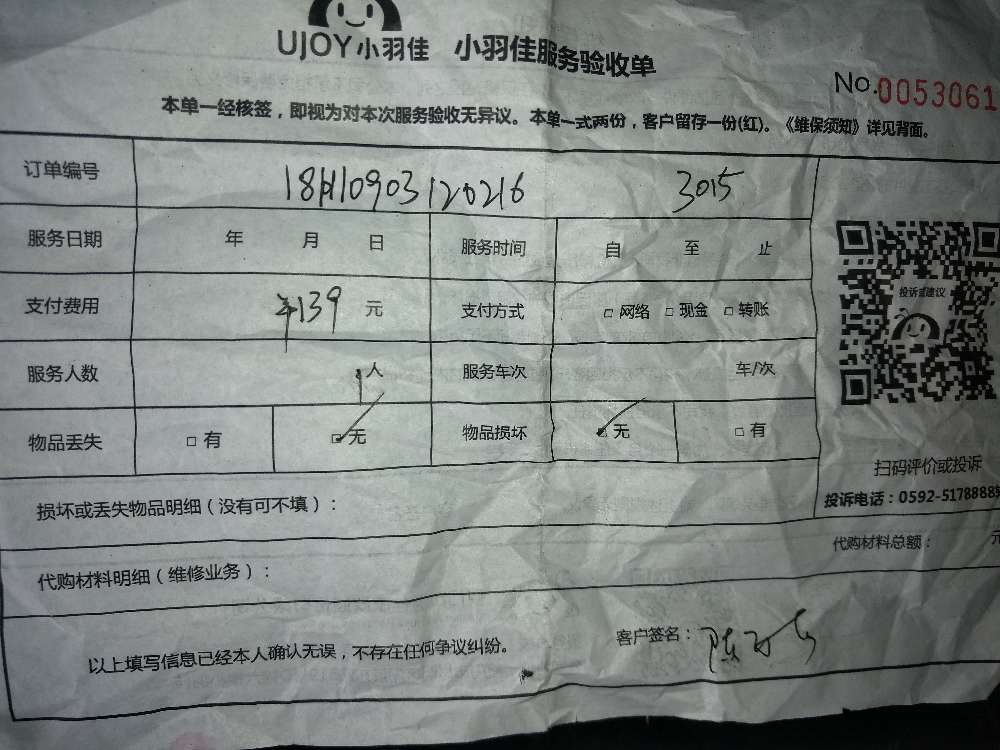 UJOY小羽佳 小羽佳服务验收单
No.0053061
本单一经核签，即视为对本次服务验收无异议。本单一式两份，客户留存一份(红)。《维保须知》详见背面。
订单编号 3015
服务日期 年 月 日 服务时间 自 至 止
支付费用 ¥139 元 支付方式 □ 网络 □ 现金 □ 转账
投诉或建议
服务人数 1人 服务车次 车/次
物品丢失 □ 有 □ 无 物品损坏 □ 无 □ 有
扫码评价或投诉
损坏或丢失物品明细（没有可不填）：
投诉电话：0592-5178888
代购材料明细（维修业务）：
代购材料总额： 元
以上填写信息已经本人确认无误，不存在任何争议纠纷。
客户签名：